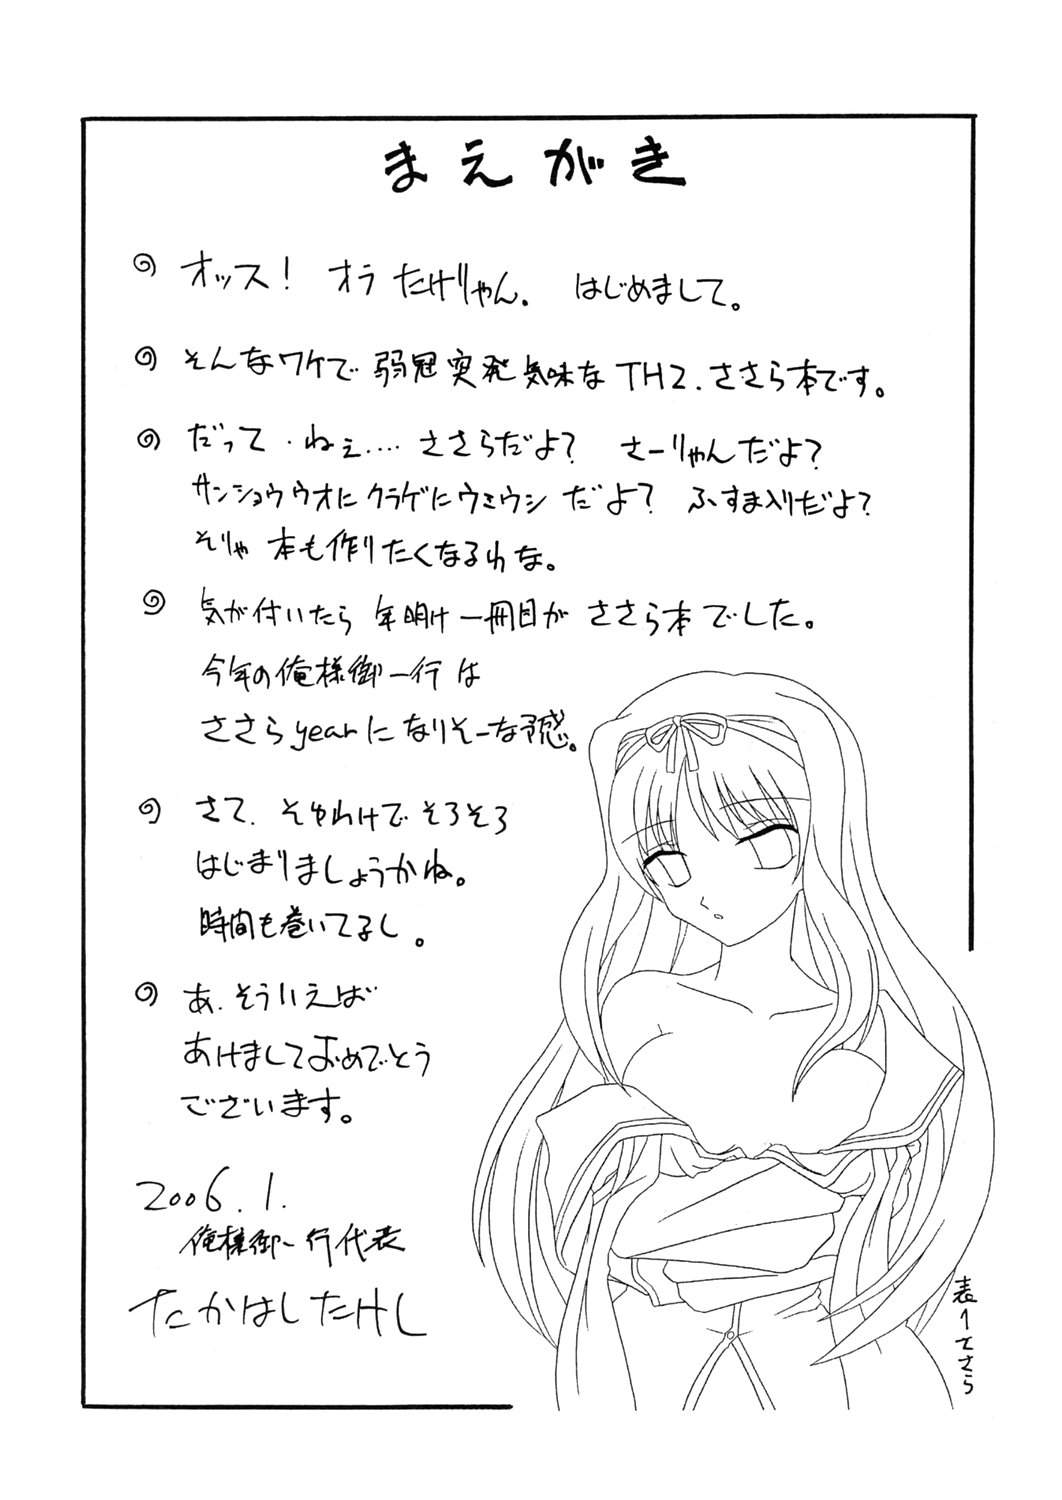 まえがき
オッス! オラ たけりゃん. はじめまして。
そんなワケで 弱冠 突発気味な TH2. ささら本です。
だって・ねぇ.... ささらだよ? さーりゃんだよ?
サンショウウオに クラゲに ウミウシ だよ? ふすま入りだよ?
そりゃ 本も作りたくなるわな。
気が付いたら 年明け一冊目が ささら本でした。
今年の俺様御一行 は
ささら yearに なりそーな予感。
さて. そゆわけで そろそろ
はじまりましょうかね。
時間も巻いてるし。
あ. そういえば
あけましておめでとう
ございます。
2006.1.
俺様御一行代表
たかはしたけし